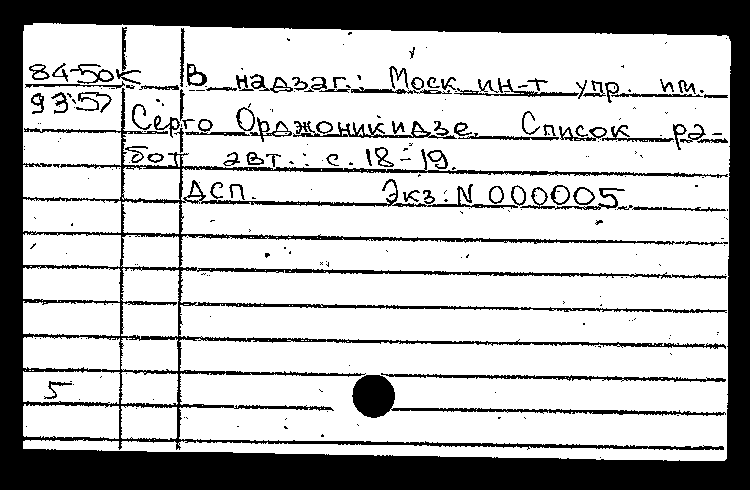 84-50к В надзаг.: Моск ин-т упр. им.
93\57 Серго Орджоникидзе. Список ра-
бот авт.: с. 18-19.
ДСП. Экз: N 000005
5